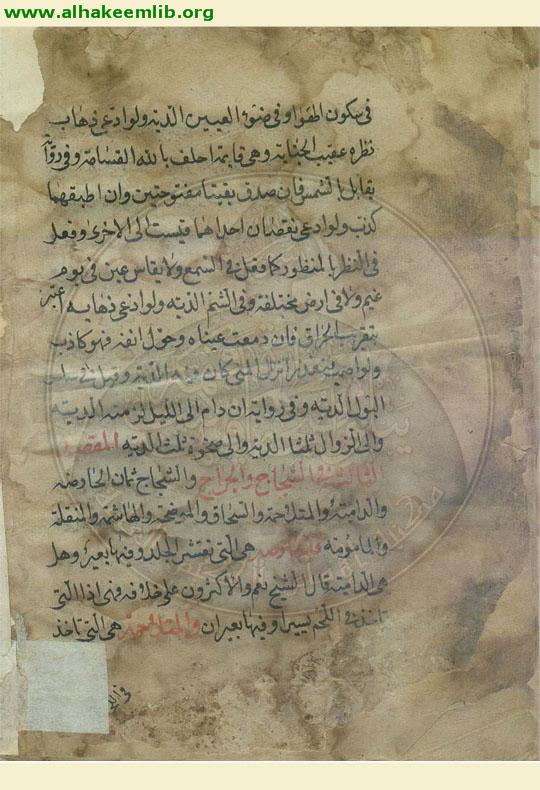 www.alhakeemlib.org
في سكون الهواء وفي ضوء العينين الدية ولو ادعى ذهاب
نظره عقيب الجناية وهي قائمة احلف بالله القسامة وفي رواية
يقابل الشمس فان صدق بقيتا مفتوحتين وان اطبقهما
كذب ولو ادعى نقصان احداهما قيست الى الاخرى وفعل
في النظر بالمنظور كما فعل في السمع ولا يقاس عين في يوم
غيم ولا في ارض مختلفة وفي الشم الدية ولو ادعى ذهابه اعتبر
بتقريب الحراق فان دمعت عيناه وحول انفه فهو كاذب
ولو اصيب فتعذر انزال المني كان فيه الدية وقيل في سلس
البول الدية وفي رواية ان دام الى الليل لزمته الدية
والى الزوال ثلثا الدية والى ضحوة ثلث الدية المقصد
الثالث في الشجاج والجراح والشجاج ثمان الحارصة
والدامية والمتلاحمة والسمحاق والموضحة والهاشمة والمنقلة
والمامومة فالحارصة هي التي تقشر الجلد وفيها بعير وهل
هي الدامية قال الشيخ نعم والاكثرون على خلافه فهي اذا التي
تاخذ في اللحم يسيرا وفيها بعيران والمتلاحمة هي التي تاخذ